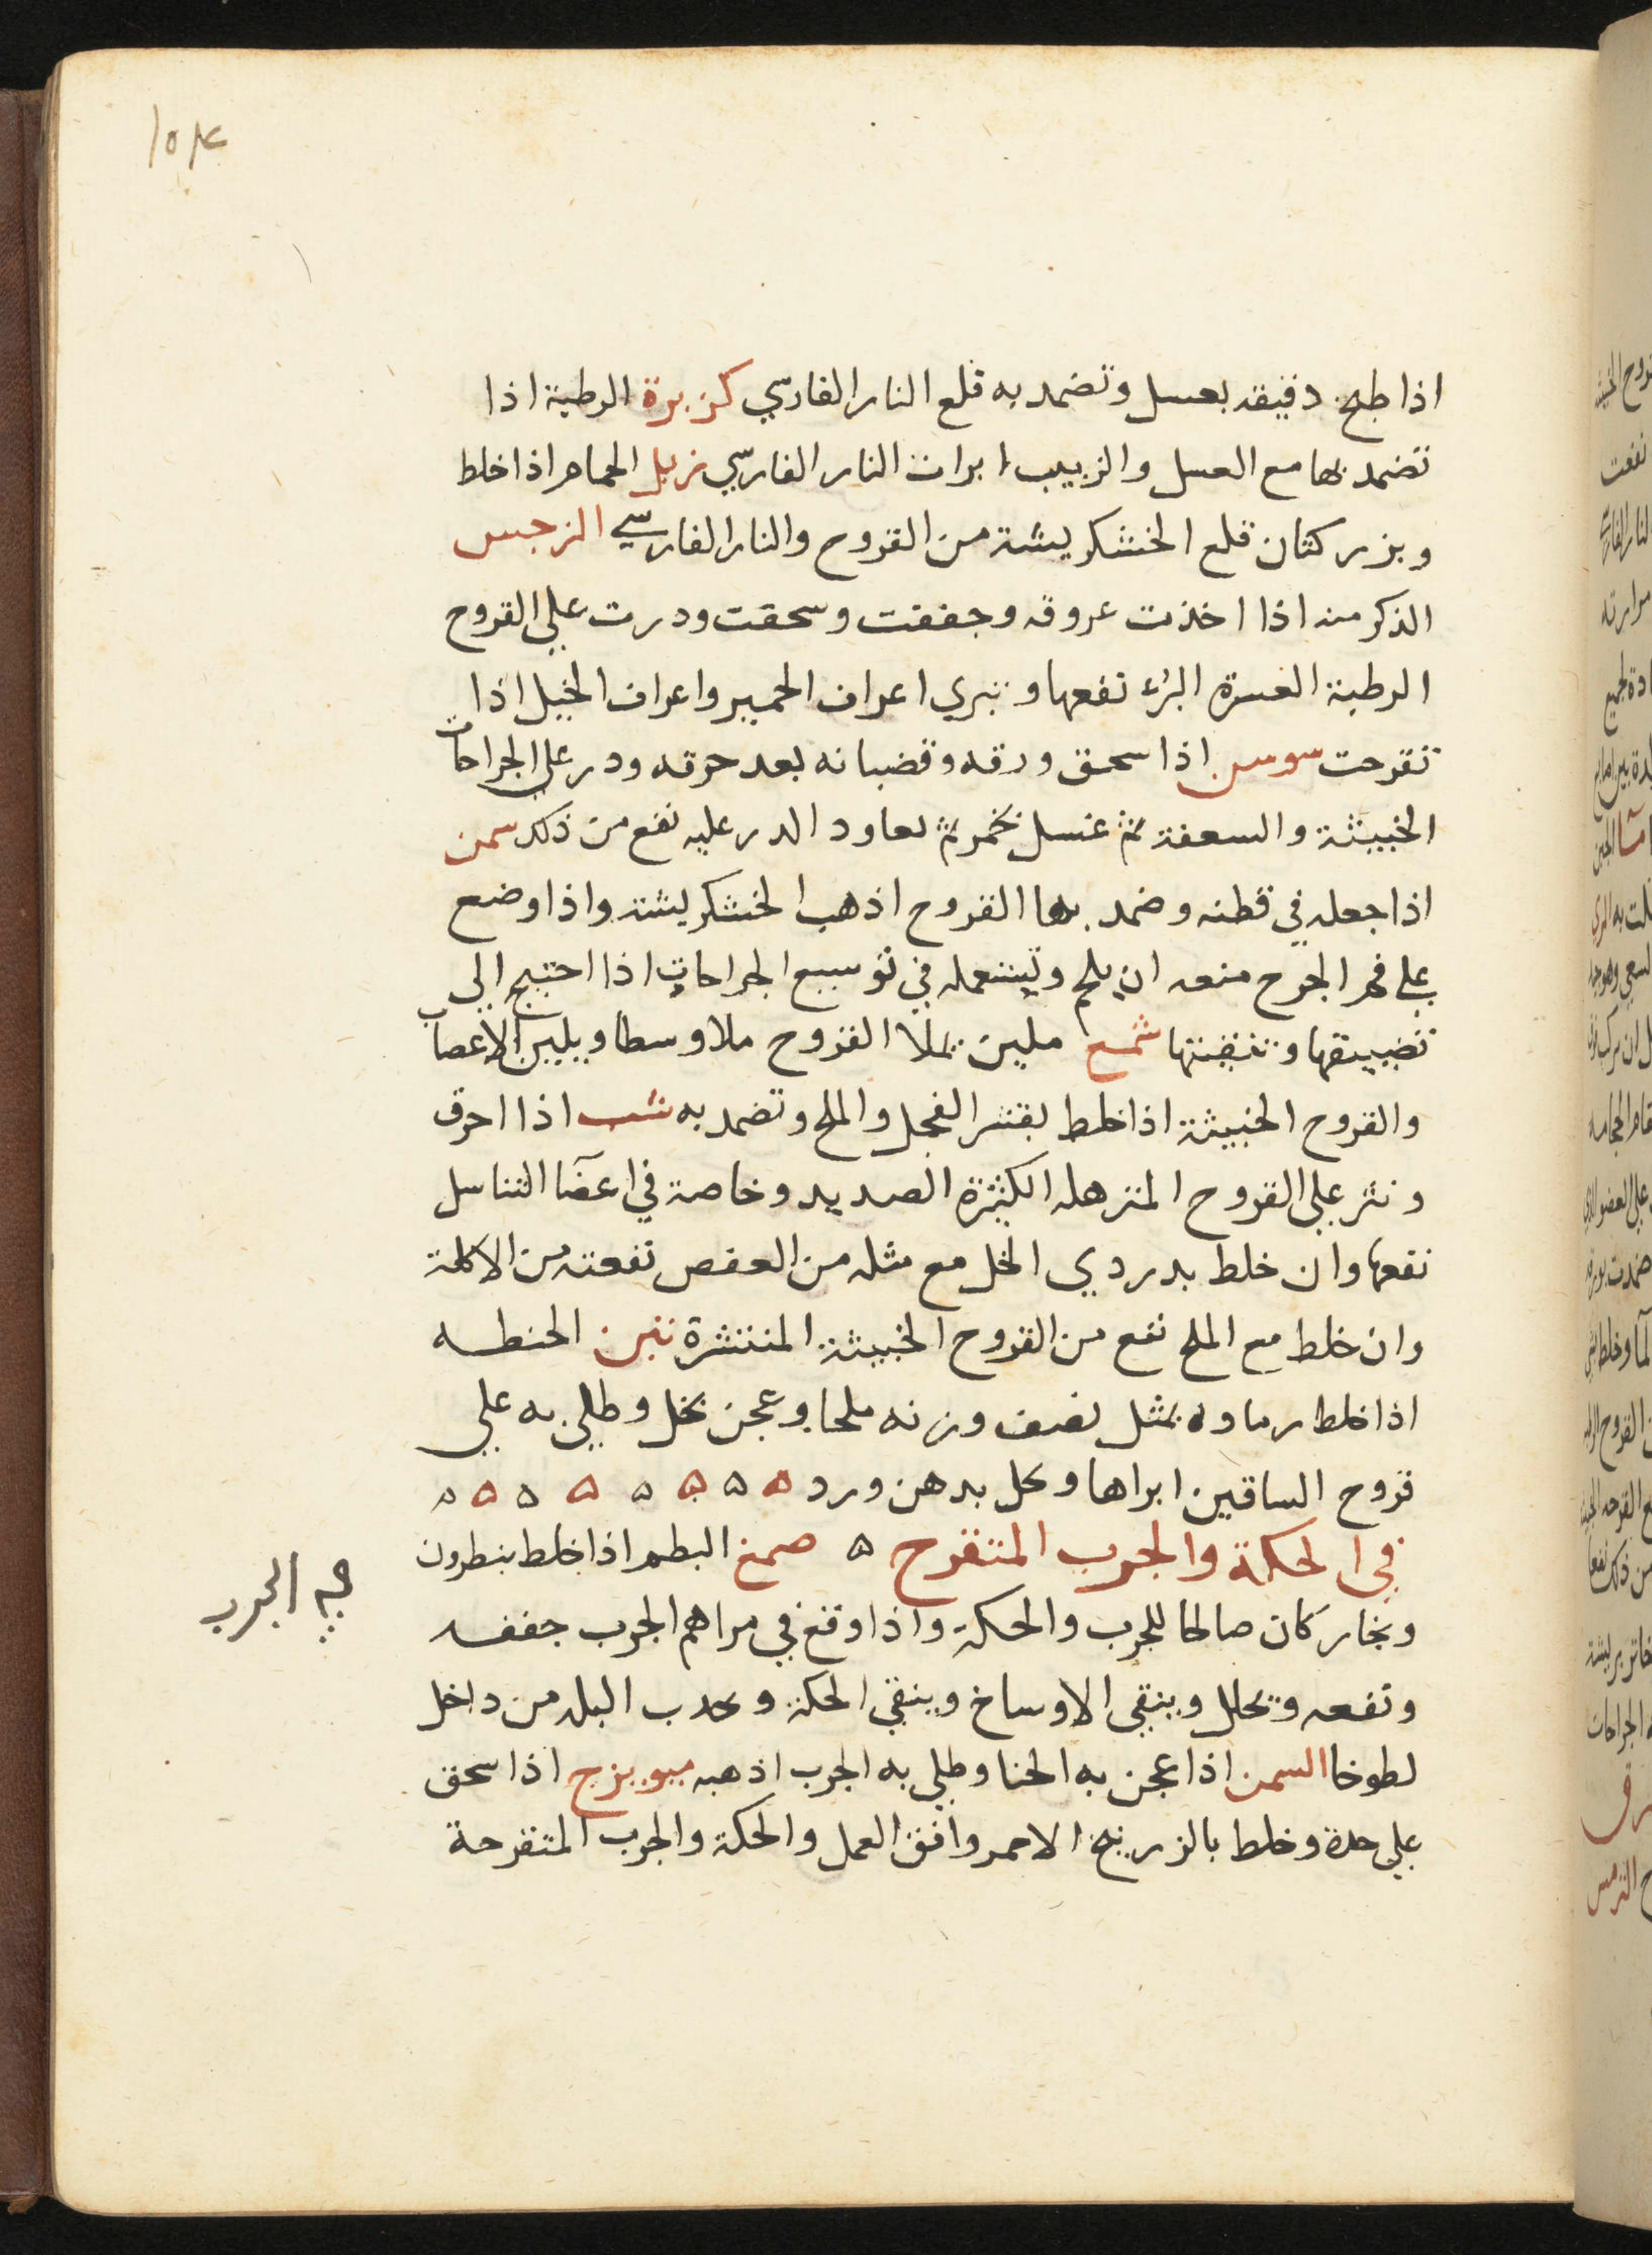 ١٥٤
اذا طبخ دقيقه بعسل وتضمد به قلع النار الفارسي كزبرة الرطبة اذا
تضمد بها مع العسل والزبيب ابرات النار الفارسي زبل الحمام اذا خلط
وبزر كتان قلع الخشكريشة من القروح والنار الفارسي النرجس
الذكر منه اذا اخذت عروقه وجففت وسحقت ودرت علي القروح
الرطبة العسرة البرء نفعها وتبري اعراف الحمير واعراف الخيل اذا
تقرحت سوسن اذا سحق ورقه وقضبانه بعد حرقه ودر علي الجراحات
الخبيثة والسعفة ثم غسل بخمر ثم يعاود الدر عليه نفع من ذلك سمن
اذا جعله في قطنه وضمد بها القروح اذهب الخشكريشة واذا وضع
علي فم الجرح منعه ان يلحم ويستعمله في توسيع الجراحات اذا احتيج الي
تضييقها وتنقيتها شمع ملين يملا القروح ملا وسطا ويلين الاعصاب
والقروح الخبيثة اذا خلط بقشر الفجل والملح وتضمد به شب اذا احرق
ونثر علي القروح المترهله الكثيرة الصديد وخاصة في اعضآ التناسل
نفعها وان خلط بدردي الخل مع مثله من العفص نفعته من الاكلة
وان خلط مع الملح نفع من القروح الخبيثة المنتشرة تبن الحنطه
اذا خلط رماده بمثل نصف وزنه ملحا وعجن بخل وطلي به علي
قروح الساقين ابراها وحل بدهن ورد ه ه ه ه ه ه ه ه
في الحكة والجرب المتقرح ه صمغ البطم اذا خلط بنطرون
وبخار كان صالحا للجرب والحكة واذا وقع في مراهم الجرب جففه
ونفعه وتحلل وينقي الاوساخ وينقي الحكة وىحدب البله من داخل
لطوخا السمن اذا عجن به الحنا وطلي به الجرب اذهبه ميويزج اذا سحق
علي حدة وخلط بالزرنيخ الاحمر وافق العمل والحكة والجرب المتقرحة
في الجرب